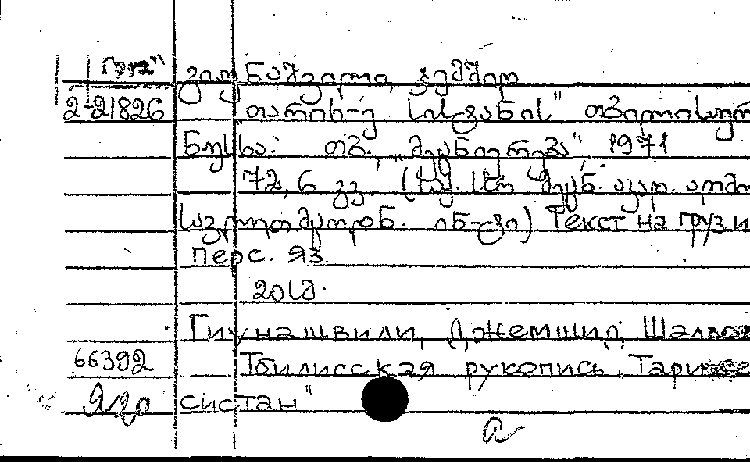 "груз" გიუნაშვილი, ჯემშიდ
2-21826 "თარიხ-ე სისტანის" თბილისურ
ნუსხა. თბ. "მეცნიერება", 1971
72, 6 გვ. (საქ. სსრ მეცნ. აკად. აღმო
სავლეთმცოდნ. ინ-ტი) Текст на груз и
перс. яз
20სმ.
Гиунашвили, Джемшид Шалвов
66392 Тбилисская рукопись "Тарихе
систан"